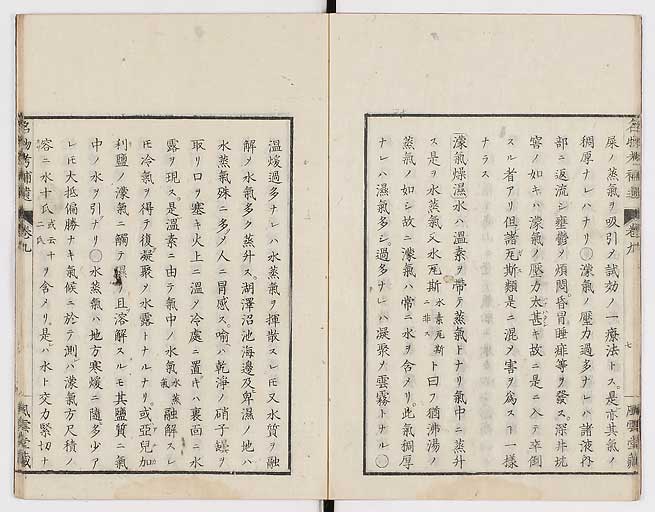 屎ノ蒸氣ヲ吸引メ試効ノ一療法トス。是亦其氣ノ
稠厚ナレハナリ○濛氣ノ壓力過多ナレハ諸液內
部ニ返流シ壅鬱メ煩悶昏冒睡痱等ヲ發ス。深井坑
窖ノ如キハ濛氣ノ壓力太甚キ故ニ是ニ入テ卒倒
スル者アリ但諸瓦斯類是ニ混メ害ヲ爲ス一樣
ナラス
濛氣燥濕水ハ温素ヲ帶テ蒸氣トナリ氣中ニ蒸升
ス是ヲ水蒸氣又水瓦斯水素瓦斯ニ非スト曰フ猶沸湯ノ
蒸氣ノ如シ故ニ濛氣ハ常ニ水ヲ含メリ此氣稠厚
ナレハ濕氣多シ過多ナレハ凝聚メ雲霧トナル○
七
風雲堂藏
名物考補遺 卷九
温煖過多ナレハ水蒸氣ヲ揮散ス而又水質ヲ融
解メ水氣多ク蒸升ス。湖澤沼池海邊及卑濕ノ地ハ
水蒸氣殊ニ多メ人ニ冒感ス。喻ハ乾淨ノ硝子罎ヲ
取リ口ヲ塞キ火上ニ温メ冷處ニ置キハ裏面ニ水
露ヲ現ス。是温素ニ由テ氣中ノ水氣水蒸氣融解スレ
𪜈冷氣ヲ得テ復凝聚メ水露トナルナリ。或亞兒加
利鹽ノ濛氣ニ觸テ濕リ且溶解スルモ其鹽質ニ氣
中ノ水ヲ引ナリ○水蒸氣ハ地方寒煖ニ隨多少ア
レ𪜈大抵偏勝ナキ氣候ニ於テ測ハ濛氣方尺積ノ
容ニ水十氏或云十二氏ヲ含メリ。是ハ水ト交力緊切ナ
名物考補遺 卷九
風雲堂藏